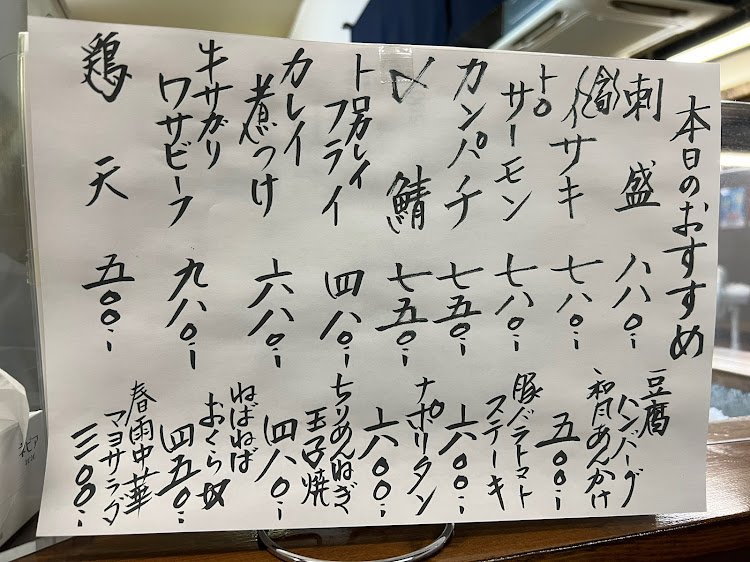 本日のおすすめ
刺盛 八八〇
イサキ 七八〇
トロサーモン 七八〇
カンパチ 七五〇
〆鯖 七五〇
トロカレイフライ 四八〇
カレイ煮つけ 六八〇
牛サガリワサビーフ 九八〇
鶏天 五〇〇
豆腐ハンバーグ
和風あんかけ 五〇〇
豚バラトマト
ステーキ 六八〇
ナポリタン 六〇〇
ちりめんねぎ
玉子焼 四八〇
ねばねば
おくら奴 四五〇
春雨中華
マヨサラダ 三〇〇